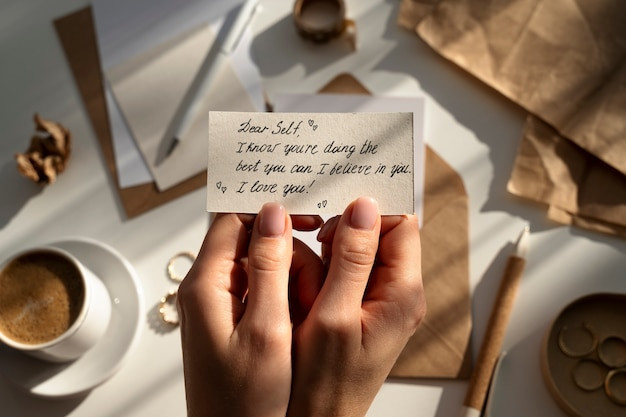 Dear Self,
I know you're doing the
best you can I believe in you.
I love you!